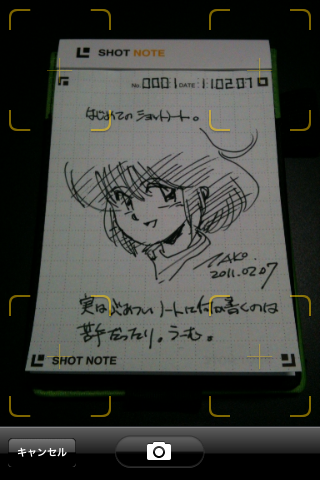 SHOT NOTE
No. 0001 DATE 110207
はじめてのショットノート。
TAKO.
2011.02.07
実はぶあついノートに何か書くのは
苦手だったり。うーむ。
SHOT NOTE
キャンセル